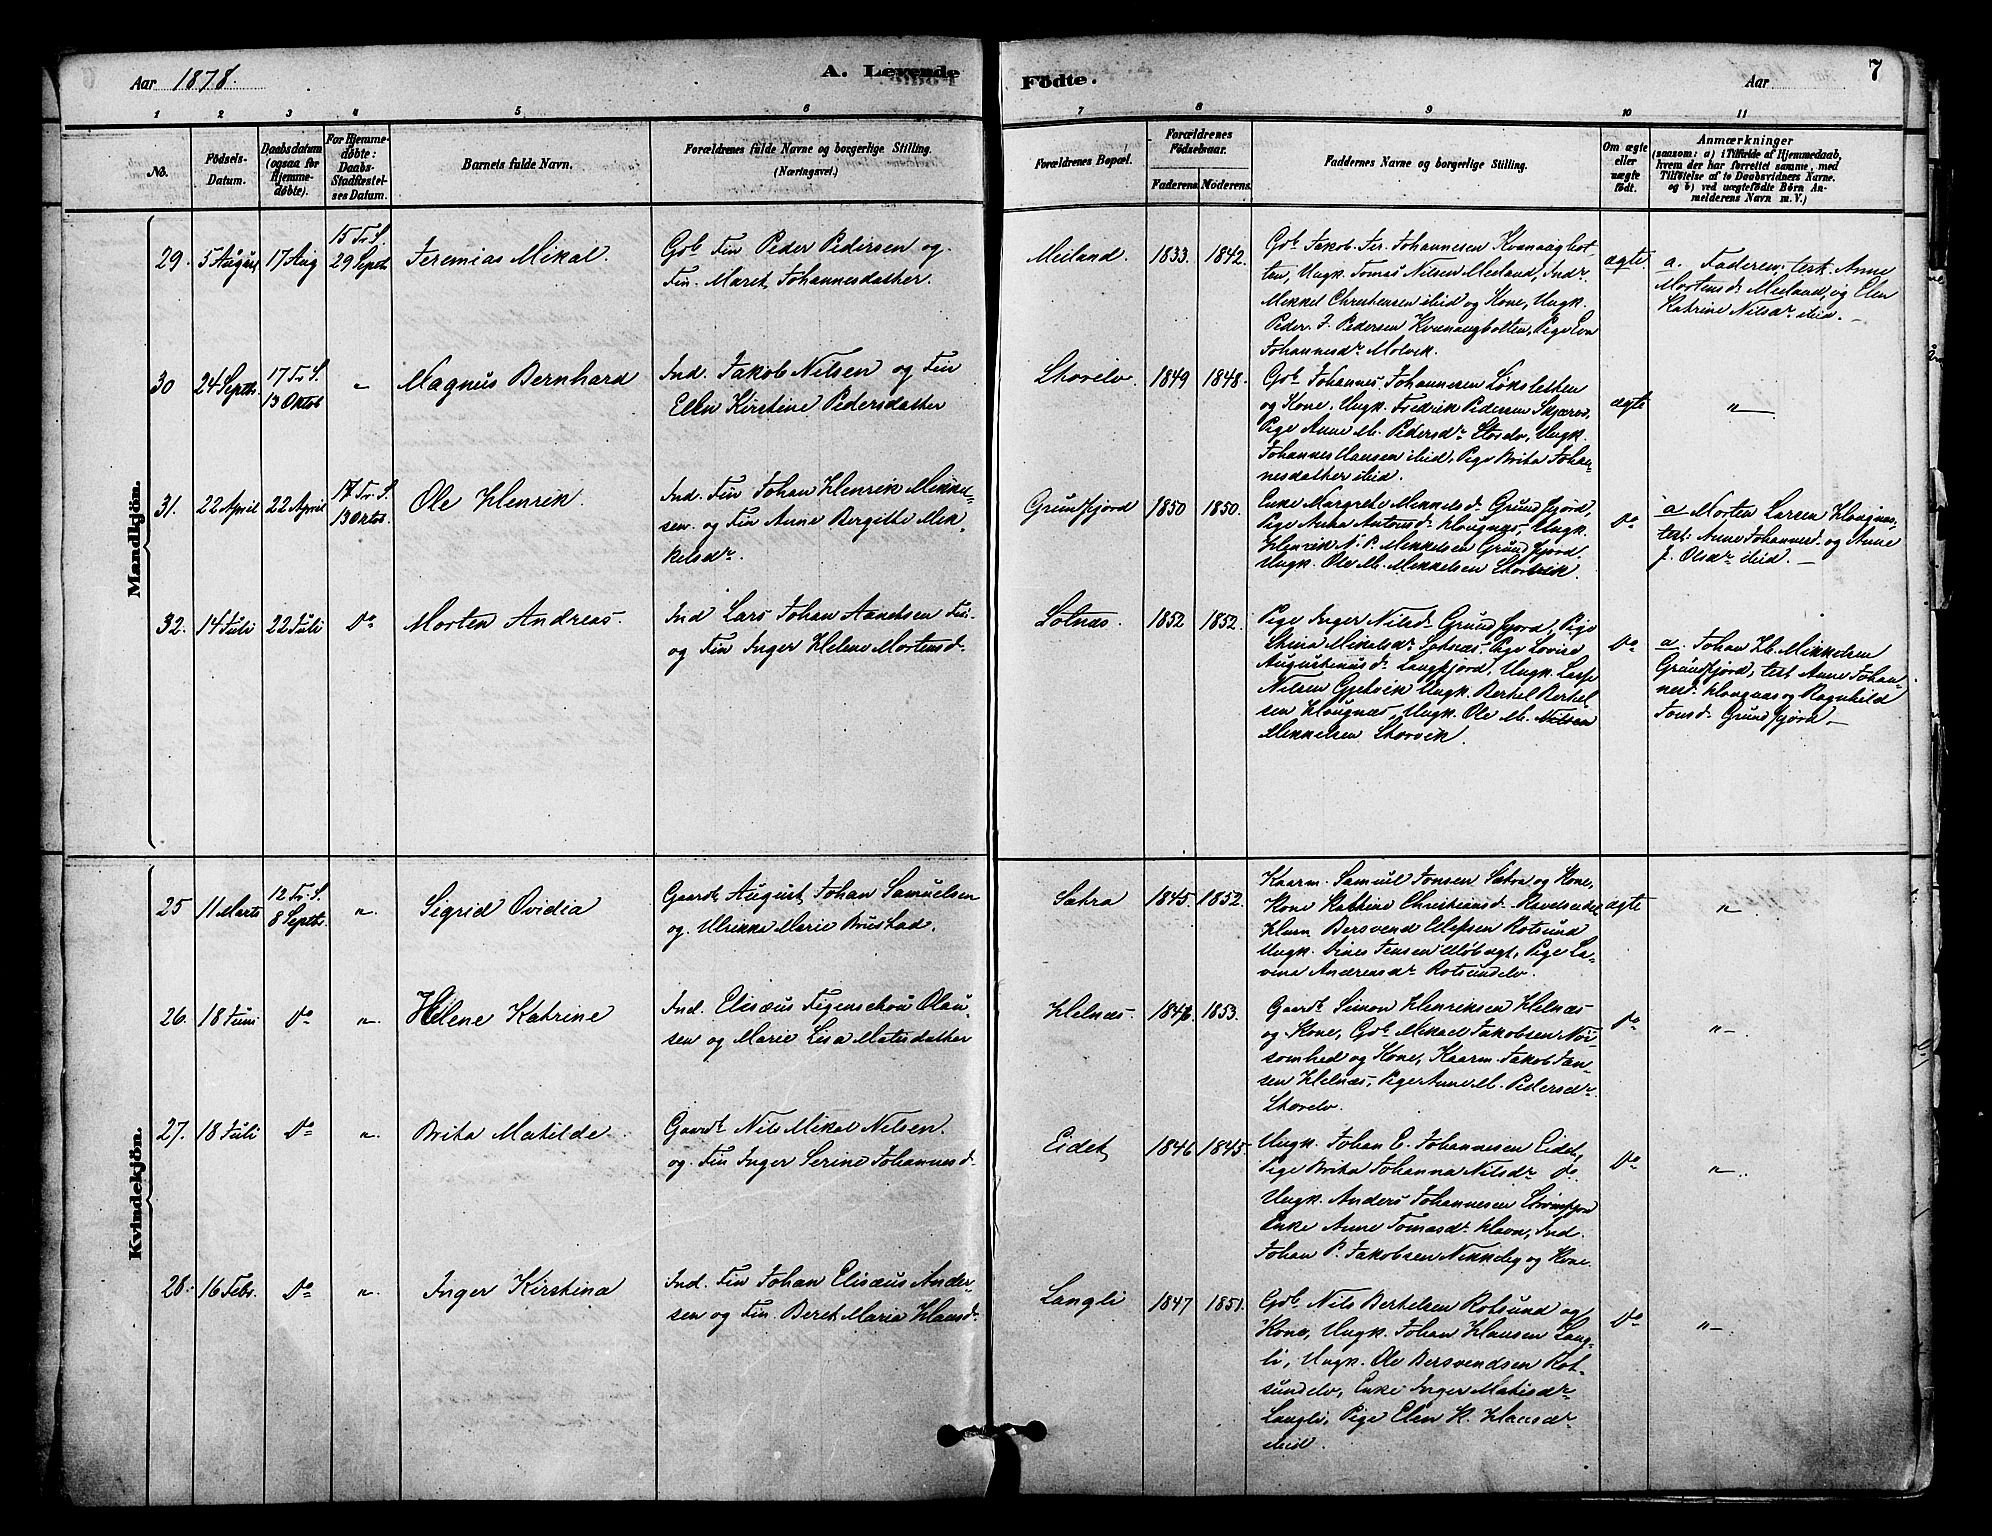 Aar 1878.
A. Levende
Födte.
Aar
7
1 2 3 4 5 6 7 8 9 10 11
No.
Födsels-
Datum.
Daabsdatum
(ogsaa for
Hjemme-
døbte).
For Hjemme-
døbte:
Daabs-
Stadfæstel-
ses Datum.
Barnets fulde Navn.
Forældrenes fulde Navne og borgerlige Stilling.
(Næringsvei.)
Forældrenes Bopæl.
Forældrenes
Födselsaar.
Faderens. Möderens.
Faddernes Navne og borgerlige Stilling.
Om ægte
eller
uægte
födt.
Anmærkninger
(saasom: a) i Tilfælde af Hjemmedaab,
hvem der har forrettet samme, med
Tilføielse af to Daabsvidners Navne.
og b) ved uægtefödte Börn An-
melderens Navn m. V.)
Mandkjön.
29. 5 August 17 Aug
15 Tr. S.
29 Septb.
Jeremias Mikal.
Gb Fin Peder Pedersen og
Fin. Maret Johannesdather.
Meiland. 1833. 1842.
Gb Jakob Jer. Johannesen Kvænangbot-
ten, Ungk. Tomas Nilsen Meiland, Indr
Mikkel Christensen ibid og Kone, Ungk.
Peder J. Pedersen Kvænangbotten, Pige Eva
Johannesdr Molvik.
ægte.
a. Faderen; test. Anne
Mortensdr Meiland, og Elen
Katrine Nilsdr ibid. —
30 24 Septb.
17 Tr. S.
13 Oktob
"
Magnus Bernhard
Ind. Jakob Nilsen og Fin
Ellen Kirstine Pedersdather
Storelv. 1849 1848.
Gb Johannes Johannesen Løkslethen
og Kone, Ungk. Fredrik Pedersen Skjærvø,
Pige Anne M. Pedersdr Storelv, Ungk.
Johannes Hansen ibid, Pige Brita Johan-
nesdather ibid.
ægte
"
31. 22 April 22 April
17 Tr. S.
13 Oktob.
Ole Henrik
Ind. Fin Johan Henrik Mikkel-
sen. og Fin Anne Bergitte Mik-
kelsdr.
Grundfjord 1850 1850.
Enke Margrethe Mikkelsdr Grundfjord,
Pige Anna Antonsdr Haugnæs, Ungk.
Henrik N. P. Mikkelsen Grundfjord.
Ungk. Ole M. Mikkelsen Storvik.
Do
a Morten Larsen Haugnæs,
test: Anne Johannesdr og Anne
J. Olsdr ibid. —
32. 14 Juli 22 Juli Do
Morten Andreas.
Ind Lars Johan Aanensen Fin
og Fin Inger Helene Mortensdr.
Solnæs. 1852 1852.
Pige Inger Nilsdr Grundfjord, Pige
Stina Mikelsdr Solnæs, Pige Lovise
Augustinusdr Langfjord, Ungk. Lasse
Nilsen Gjetvik Ungk. Berthel Berthel-
sen Haugnæs, Ungk. Ole M. Nilsen
Mikkelsen Storvik.
Do
a. Johan H. Mikkelsen
Grundfjord, test Anne Johan-
nesdr Haugnæs og Ragnhild
Tomsdr Grundfjord —
Kvindekjön.
25 11 Marts
12 Tr. S.
8 Septb.
"
Sigrid Ovidia
Gaardb August Johan Samuelsen
og Ulrikka Marie Brustad.
Sætra 1845 1852.
Kaarm. Samuel Jonsen Sætra og Kone,
Kone Kathrine Christiansdr Ravelseidet
Husm Bersvend Ellefsen Rotsund
Ungk. Dines Jensen Uløbugt, Pige La-
vina Andreasdr Rotsundelv.
ægte
"
26. 18 Juni Do "
Helene Katrine
Ind. Elisæus Figenschou Olau-
sen og Marie Lisa Matisdather
Helnæs. 1846. 1853.
Gaardb Simon Henriksen Helnæs
og Kone, Gb Mikael Jakobsen Nor-
somhed og Kone, Kaarm Jakob Jan-
sen Helnæs, Pige Anne M. Pedersdr
Storelv.
Do
"
27. 18 Juli Do "
Brita Matilde
Gaardb Nils Mikal Nilsen.
og Fin Inger Serine Johannesdr.
Eidet 1846 1845.
Ungk. Johan E. Johannesen Eidet,
Pige Brita Johanna Nilsdr do.
Ungk. Anders Johannesen Strømfjord
Enke Anne Tomasdr Havn, Ind.
Johan P. Jakobsen Nikkeby og Kone.
Do
"
28. 16 Febr. Do "
Inger Kirstina
Ind. Fin Johan Elisæus Ander-
sen og Fin. Beret Maria Hansdr.
Langli 1847 1851.
Gdb. Nils Berthelsen Rotsund og
Kone, Ungk. Johan Hansen Lang-
li, Ungk. Ole Bersvendsen Rot-
sundelv, Enke Inger Matisdr
Langli, Pige Elen K. Hansdr
ibid.
Do
"